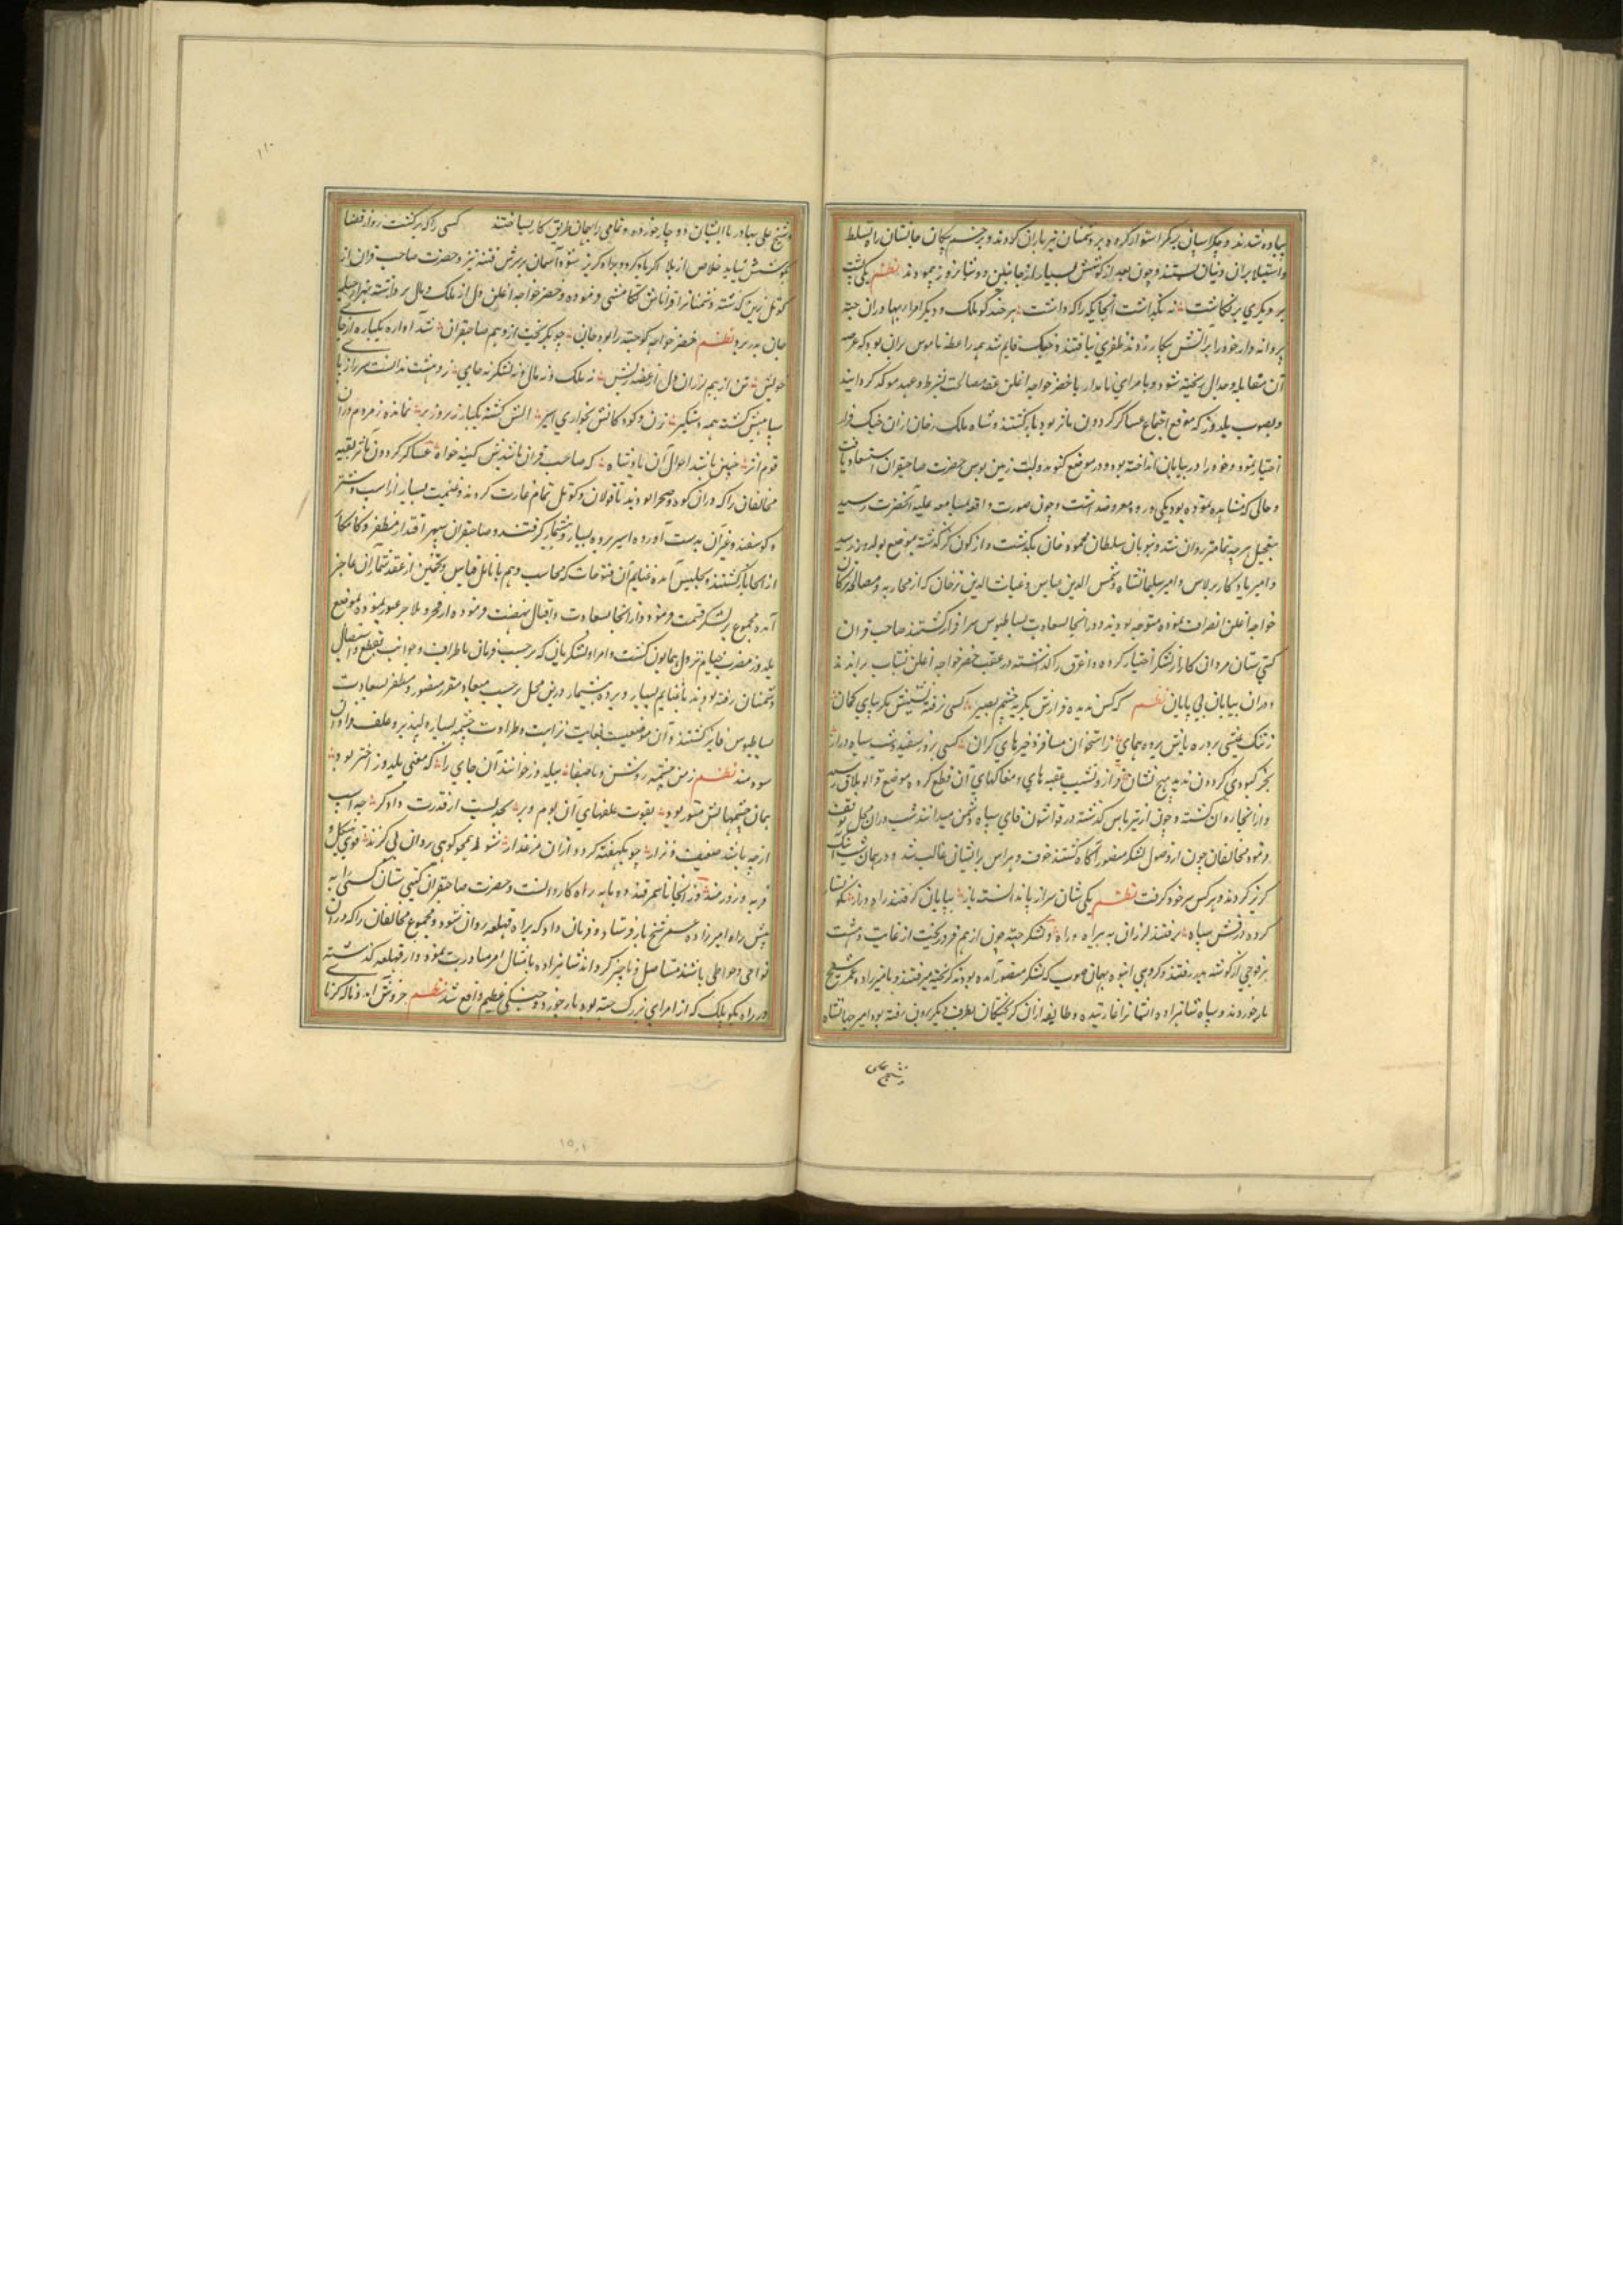 پیاده شدند و چکار اسپان بر کمر استوار کرده بر دشمنان تیرباران کردند و بزخم پیکان جانستان راه تسلط
و استیلا بر آن دنیان بستند و چون بعد از کوشش بسیار از جانبین دو شبانروز پیمودند نظم یکی پشت
بر دیگری بر نگاشت نه بگذاشت آنجایگه را که داشت هر چند کو ملک و دیگر امرا و بهادران جته
پروانه وار خود را بر آتش پیکار زدند ظفری نیافتند و جنگ قایم شد همه را عطه ناموس بران بود که عرصه
آن مقابله و جدال ریخته شود و با مرای نامدار با خضر خواجه اغلن عقد مصالحت بشرط و عهد موکد گردانید
و بصوب یلدوز که موقع اجتماع عساکر گردون ماثر بود بازگشتند و شاه ملک ترخان از آن جنگ فرار
اختیار نمود و خود را در بیابان انداخته بود و در موضع کتو بدولت زمین بوس حضرت صاحبقران استسعاد یافت
و حالی که مشاهده نموده بود یکی در وه معروضداشت و چون صورت واقعه بمسامع علیه آنحضرت رسید
بتعجیل هرچه تمامتر روان شد و نیوبان سلطان محمود خان بگذشت و از کون کر گذشته بموضع یولدوز رسید
و امیر یادگار برلاس و امیر سلیمانشاه و شمس الدین عباس و غیاث الدین ترخان که از محاربه و مصالحه ترکان
خواجه اغلن انصراف نموده متوجه بودند و در آنجا بسعادت بساطبوس سرافراز گشتند صاحب قران
گیتی ستان مردان کارزار لشکر اختیار کرده و اغرق را گذاشته در عقب خضر خواجه اغلن بشتاب براندند
و در آن بیابان بی پایان نظم که کس ندیده فرازش بگر بچشم بصیر کسی نرفته نشیبش مگر بپای گمان
ز تنگ عیشی بروره یابش بروه همای ز استخوان مسافر ذخیرهای گران کسی بروز سفید و شب سیاه دراز
بجز کبودی گردون ندید هیچ نشان فراز و نشیب عقبه های و مغاکهای آن قطع کرده بموضع قرابولاق رسید
و از آنجا روان گشته و چون از تیرتاس گذشته در قواشون قای سپاه دشمن میدانند شب در آن محل توقف
نمود مخالفان چون از وصول لشکر منصور آگاه گشتند خوف و هراس بر ایشان غالب شد و در همان شب
گریز کردند و هر کس سر خود گرفت نظم یکی شان سر از پا ندانسته باز بیابان گرفتند راه دراز نگونسار
کرده درفش سیاه برفتند لرزان به بیراه و راه و لشکر جته چون از هم فرو ریخت از غایت دهشت
هر فوجی از گوشه بدر رفتند و گروهی انبوه بهمان صوب که لشکر منصور آمده بودند گریخته میرفتند و بامیرزاده عمر شیخ
باز خوردند و سپاه شاهزاده ایشانرا غارتیده و طایفه از آن گریختگان بطرف دیگر بیرون رفته بود امیر جهانشاه
شیخ علی
و شیخ علی بهادر با ایشان دو چار خورده و تمامی را بهمان طریق کار بساختند کسی را که برگشت روز از قضا
بکوشش نیابد خلاص از بلا اگر باد گردد براه گریز شود آسمان بر سرش فتنه ریز و حضرت صاحب قران از
کوتل نیرین گذشته دشمنانرا تا قراتاش تکامشی فرموده و خضر خواجه اغلن دل از ملک و مال برداشته بهزار حیله
جان بدر برد نظم خضر خواجه کو جته را بود جان چو بگریخت از بیم صاحبقران شد آواره یکباره از جای
خویش تن از بیم لرزان دل از غصه ریش نه ملک و نه مال و نه لشکر نه جای ز دهشت ندانست سر را ز پای
سپاهیش گشته همه دستگیر زن و کودکانش بخواری اسیر الش گشته یکبار زیر و زبر نمانده ز مردم در آن
قوم اثر چنین باشد احوال آن پادشاه که صاحب قران باشدش کینه خواه عساکر گردون ماثر بقیه
مخالفان را که در آن کوه و صحرا بودند تا قولان و کوتل تمام غارت کردند و غنیمت بسیار از اسب و شتر
و گوسفند و غیر آن بدست آورده اسیر و برده بسیار و بیشمار گرفتند و صاحبقران سپهر اقتدار مظفر و کامکار
از آنجا بازگشتند و بجلیش آمده غنایم آن فتوحات که محاسب وهم با نامل قیاس و تخمین از عقد شمار آن عاجز
آمده مجموع بر لشکر قسمت فرمود و از آنجا بسعادت و اقبال نهضت فرموده از قچر و بلاجر عبور نموده بموضع
یلدوز مضرب خیام نزول همایون گشت و امرا و لشکریانی که بر حسب فرمان باطراف و جوانب بقطع و استیصال
دشمنان رفته بودند با غنایم بسیار و برده بیشمار در این محل بر حسب میعاد مقرر منصور و مظفر بسعادت
بساطبوس فایز گشتند و آن موضعیست بغایت نزاهت و طراوت چشمه بسیار دلپذیر و علف فراوان
سودمند نظم ز من چشمه روشن و با صفا بیلدوز خوانند آن جای را که معنی یلدوز اختر بود
بمان چشمهایش منور بود بقوت علفهای آن بوم و بر بجدیست از قدرت دادگر چه اسب
ارچه باشد ضعیف و نزار چو یکهفته گردد در آن مرغزار شود همچو کوهی روان بی گزند قوی هیکل و
فربه و زورمند و از آنجا تا سمرقند دو ماهه راه کاروانست و حضرت صاحبقران گیتی ستان کسی را به
پیش راه امیرزاده عمر شیخ باز فرستاد و فرمان داد که براه قهلغه روان شود و مجموع مخالفان را که در آن
نواحی و حوالی باشند مستاصل و ناچیز گرداند شاهزاده بامتثال امر مبادرت نمود و از قهلغه گذشته
در راه بکوبلک که از امرای بزرگ جته بود باز خورد و جنگی عظیم واقع شد نظم خروش آمد و ناله کرنا